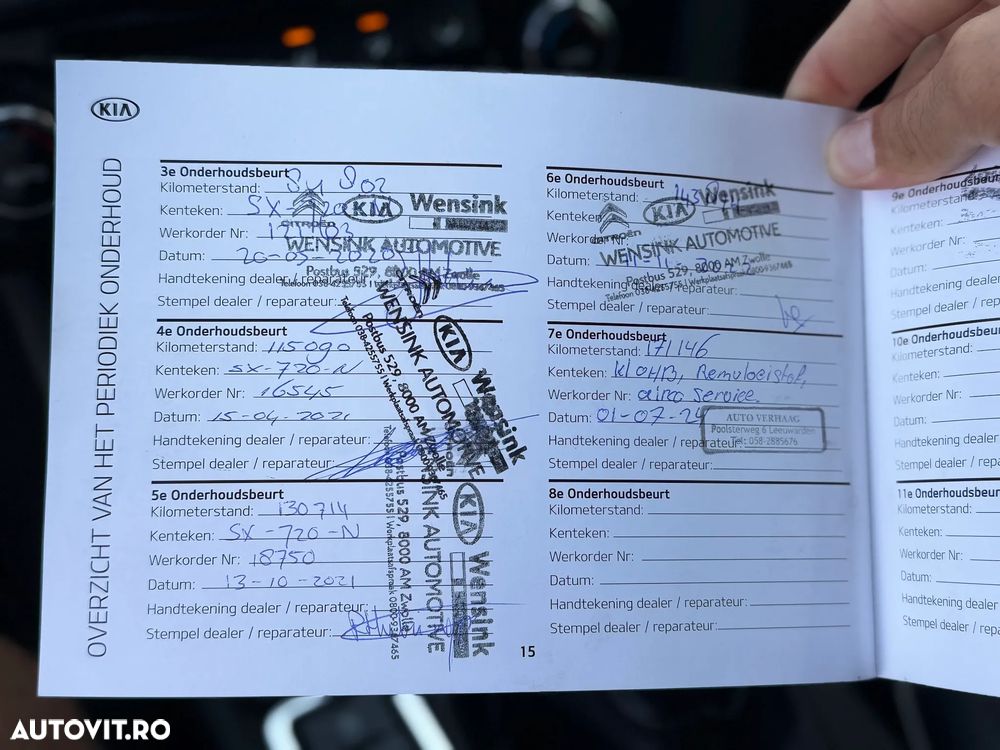 KIA
OVERZICHT VAN HET PERIODIEK ONDERHOUD
3e Onderhoudsbeurt
Kilometerstand:
Kenteken: SX-720
Werkorder Nr:
Datum: 20-05-2020
Handtekening dealer / reparateur:
Stempel dealer / reparateur:
CITROËN KIA Wensink
WENSINK AUTOMOTIVE
Postbus 529, 8000 AM Zwolle
Telefoon 038-4255755 | Werkplaatsafspraak 0800-9367465
4e Onderhoudsbeurt
Kilometerstand: 115090
Kenteken: SX-720-N
Werkorder Nr: 16545
Datum: 15-04-2021
Handtekening dealer / reparateur:
Stempel dealer / reparateur:
KIA Wensink
WENSINK AUTOMOTIVE
Postbus 529, 8000 AM Zwolle
Telefoon 038-4255755 | Werkplaatsafspraak
5e Onderhoudsbeurt
Kilometerstand: 130714
Kenteken: SX-720-N
Werkorder Nr: 18750
Datum: 13-10-2021
Handtekening dealer / reparateur:
Stempel dealer / reparateur:
KIA Wensink
WENSINK AUTOMOTIVE
Postbus 529, 8000 AM Zwolle
Telefoon 038-4255755 | Werkplaatsafspraak 0800-9367465
6e Onderhoudsbeurt
Kilometerstand:
Kenteken:
Werkorder Nr:
Datum:
Handtekening dealer / reparateur:
Stempel dealer / reparateur:
CITROËN KIA Wensink
WENSINK AUTOMOTIVE
Postbus 529, 8000 AM Zwolle
Telefoon 038-4255755 | Werkplaatsafspraak 0800-9367465
7e Onderhoudsbeurt
Kilometerstand: 171146
Kenteken: Kl OHB, Remvloeistof,
Werkorder Nr: airco service.
Datum: 01-07-24
Handtekening dealer / reparateur:
Stempel dealer / reparateur:
AUTO VERHAAG
Poolsterweg 6 Leeuwarden
Tel: 058-2885676
8e Onderhoudsbeurt
Kilometerstand:
Kenteken:
Werkorder Nr:
Datum:
Handtekening dealer / reparateur:
Stempel dealer / reparateur:
15
9e Onderhoudsbeurt
Kilometerstand:
Kenteken:
Werkorder Nr:
Datum:
Handtekening
Stempel dealer
10e Onderhoudsbeurt
Kilometerstand:
Kenteken:
Werkorder Nr:
Datum:
Handtekening
Stempel dealer
11e Onderhoudsbeurt
Kilometerstand:
Kenteken:
Werkorder Nr:
Datum:
Handtekening
Stempel dealer
AUTOVIT.RO